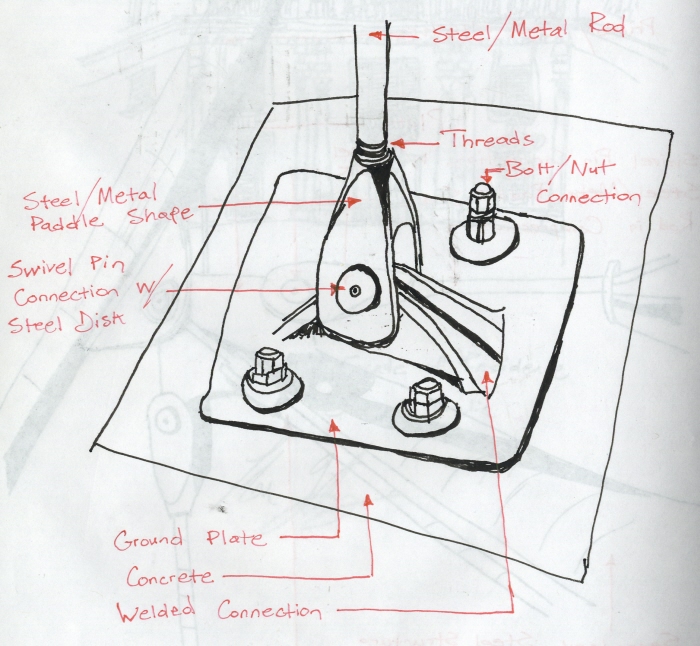 Steel/Metal Rod
Threads
Bolt/Nut
Connection
Steel/Metal
Paddle Shape
Swivel Pin
Connection w/
Steel Disk
Ground Plate
Concrete
Welded Connection